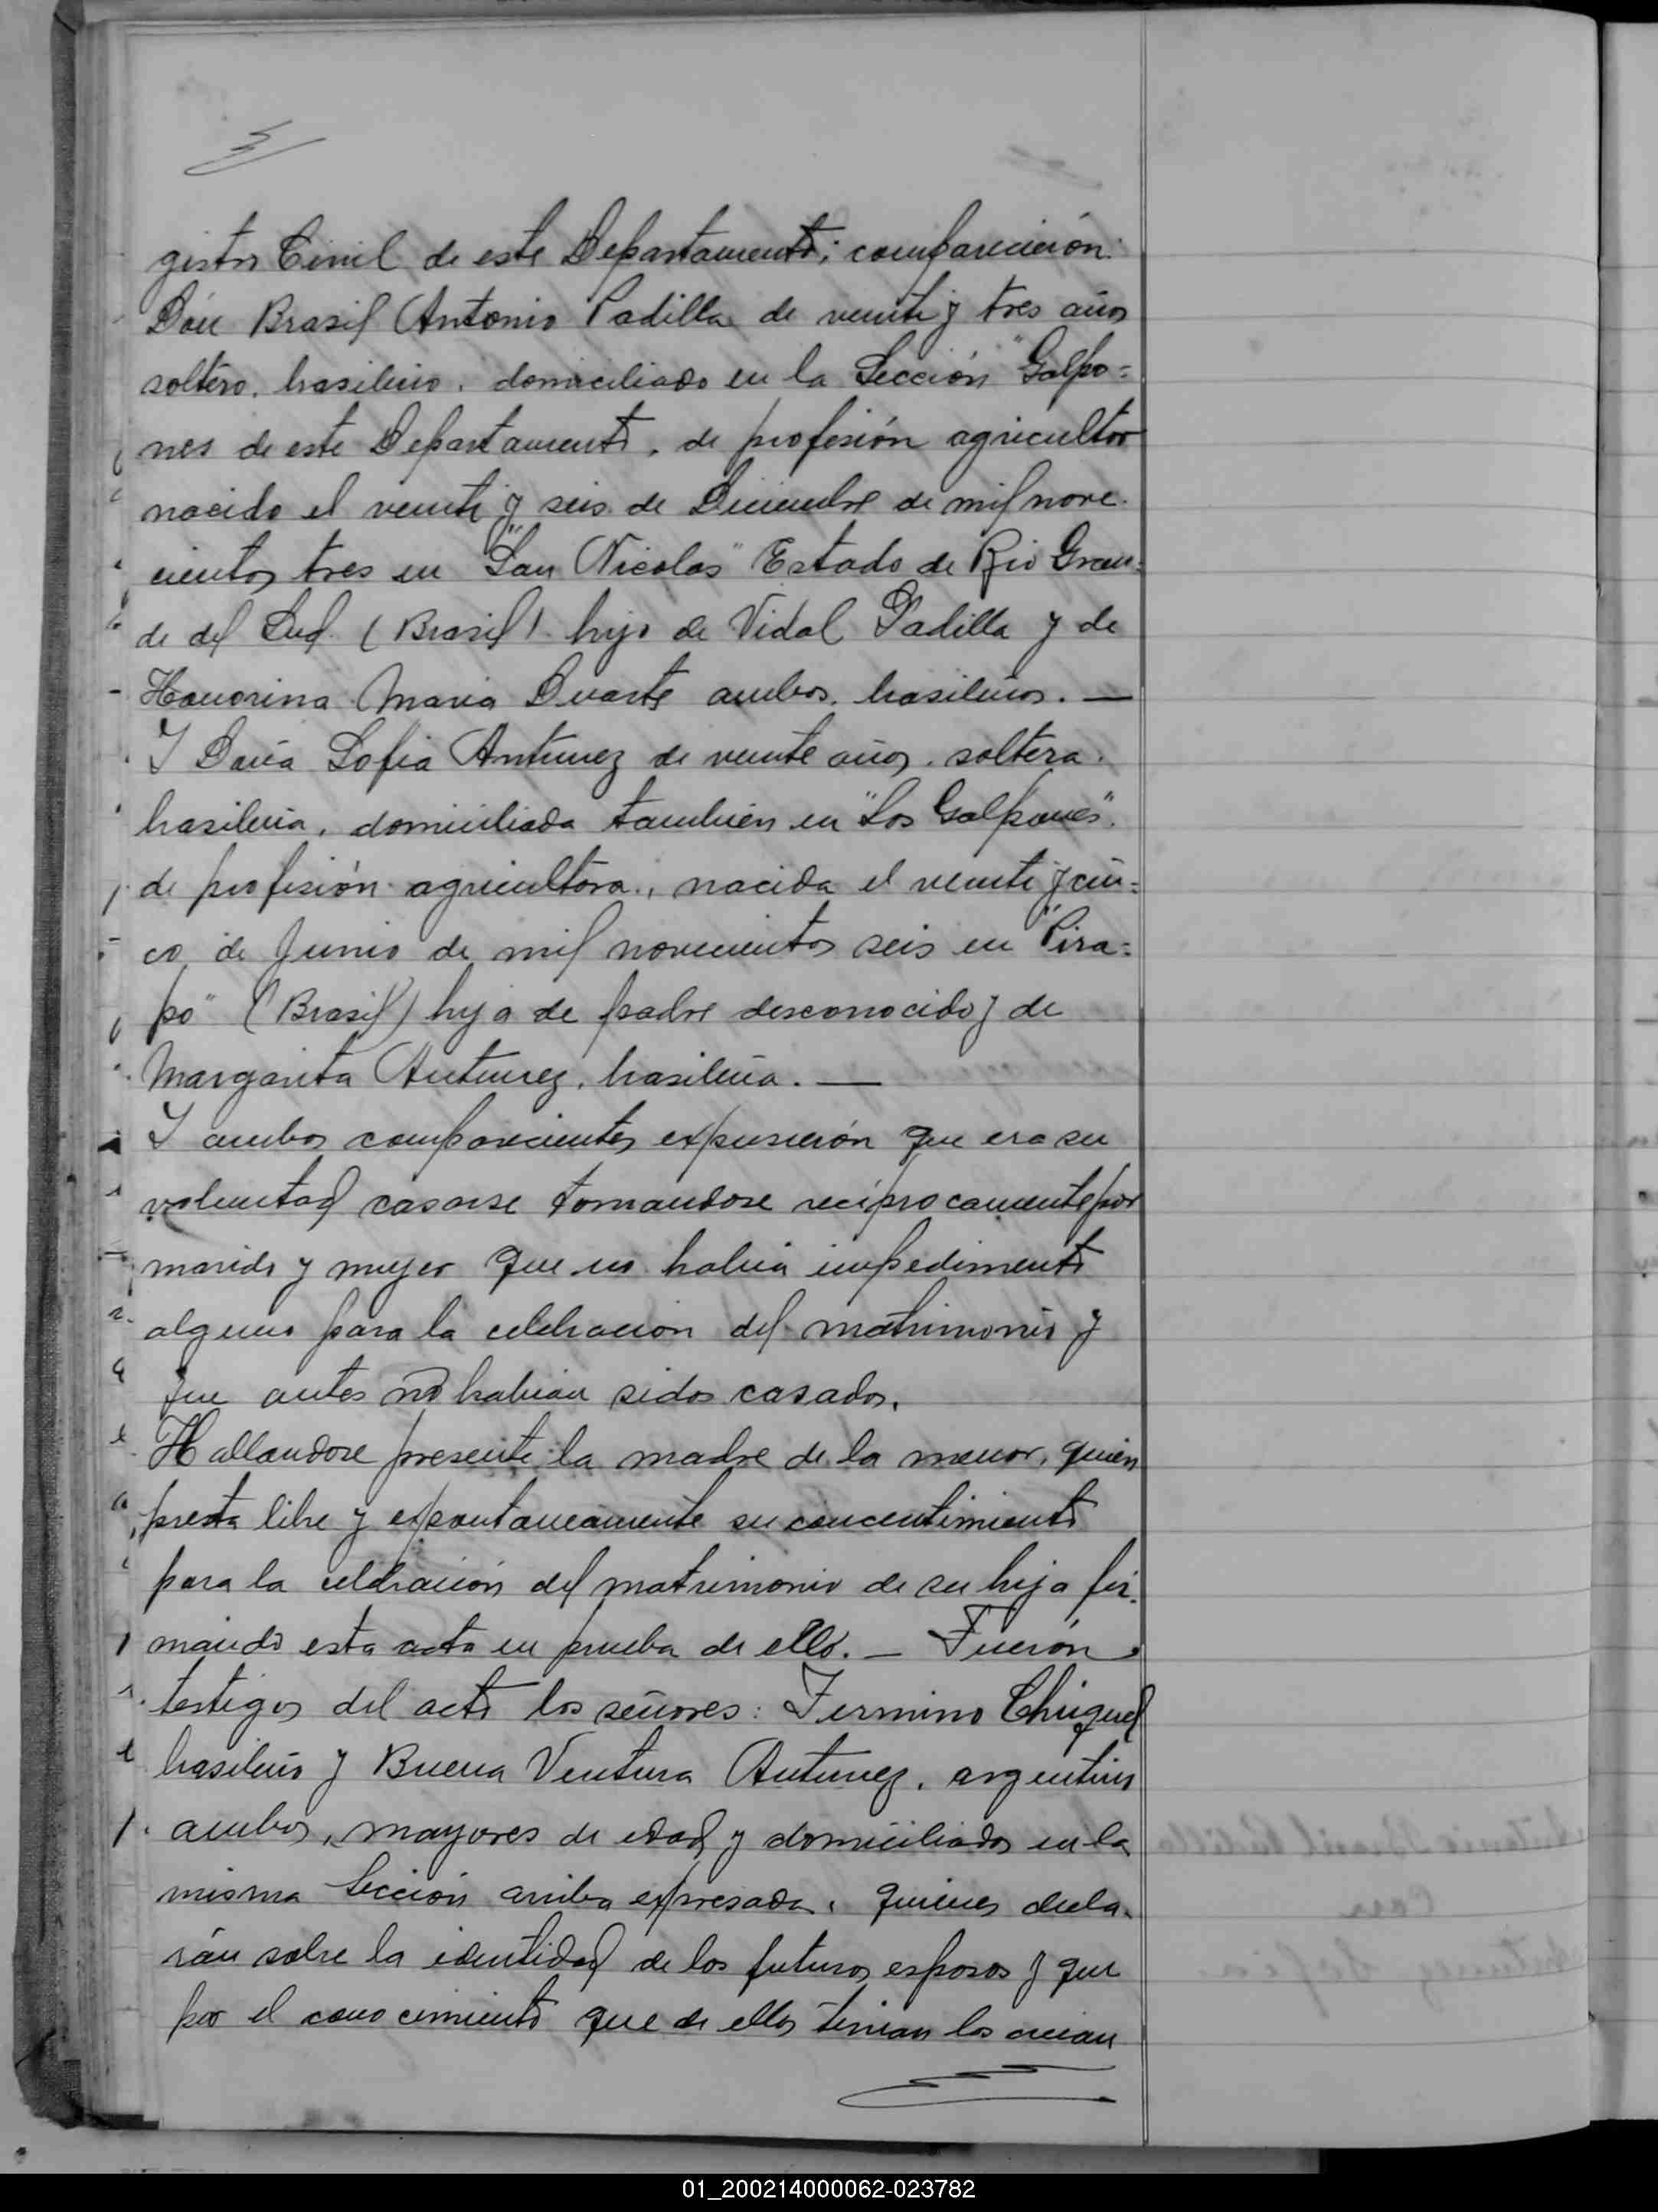 gistro Civil de este Departamento; comparecierón:
Dón Brasil Antonio Padilla de veinte y tres años
soltero, brasileño, domiciliado en la Sección "Galpo=
nes de este Departamento, de profesión agricultor
nacido el veinte y seis de Diciembre de mil nove-
cientos tres en "San Nicolas" Estado de Rio Gran=
de del Sud (Brasil) hijo de Vidal Padilla y de
Honorina Maria Duarte ambos, brasileños. —
Y Doña Sofia Antunez de veinte años, soltera,
brasileña, domiciliada también en "Los Galpones",
de profesión agricultora, nacida el veinte y cin=
co de Junio de mil novecientos seis en "Pira=
pó" (Brasil) hija de padre desconocido y de
Margarita Antunez, brasileña. —
Y ambos comparecientes expusierón que era su
voluntad casarse tomandose reciprocamente por
marido y mujer que no habia impedimento
alguno para la celebracion del matrimonio y
que antes no habian sidos casados.
Hallandose presente la madre de la menor, quien
presta libre y espontaneamente su concentimiento
para la celebración del matrimonio de su hija fir-
mando esta acta en prueba de ello. — Fuerón
testigos del acto los señores: Fermino Chiquel
brasileño y Buena Ventura Antunez, argentino
ambos, mayores de edad y domiciliados en la
misma Sección arriba expresada, quienes decla-
rán sobre la identidad de los futuros esposos y que
por el conocimiento que de ellos tenian los creian
01_200214000062-023782